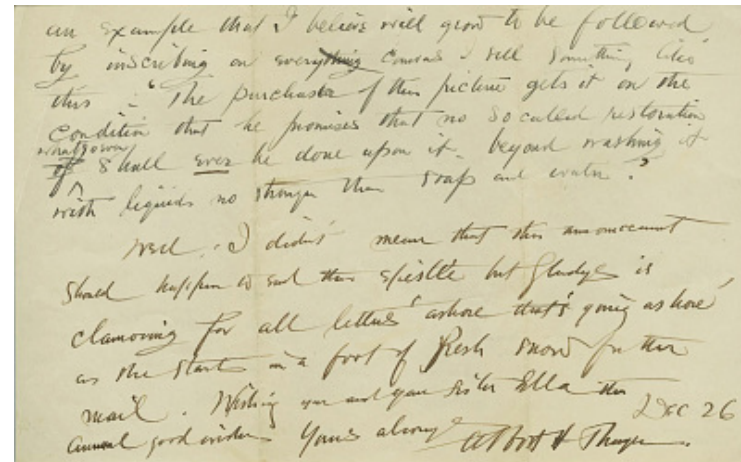 an example that I believe will grow to be followed
by inscribing on everything canvas I sell something like
this - "The purchaser of this picture gets it on the
condition that he promises that no so called restoration
whatsoever
of shall ever be done upon it - beyond washing it
with liquids no stronger than soap and water."
Well, I didn't mean that this announcement
should happen to end this epistle but Gladys is
clamoring for all letters ashore that's going ashore
as she starts in a foot of fresh snow for the
mail. Wishing you and your sister Ella the
Dec 26
annual good wishes Yours always Abbott H Thayer.